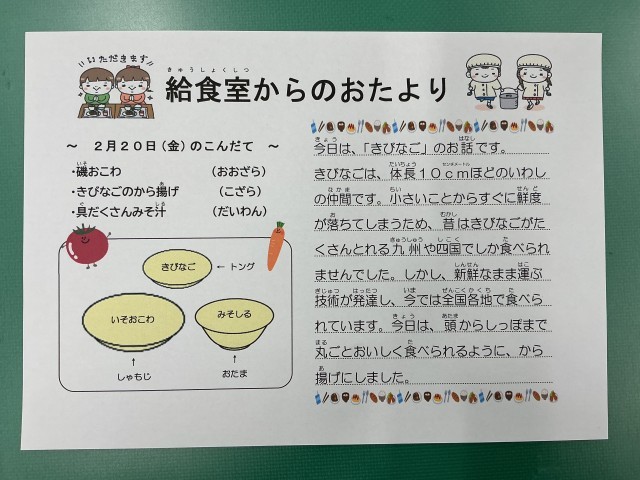 いただきます
給食室からのおたより
～ 2月20日(金)のこんだて ～
・磯おこわ (おおざら)
・きびなごのから揚げ (こざら)
・具だくさんみそ汁 (だいわん)
きびなご ← トング
いそおこわ
みそしる
↑ ↑
しゃもじ おたま
今日は、「きびなご」のお話です。
きびなごは、体長10cmほどのいわし
の仲間です。小さいことからすぐに鮮度
が落ちてしまうため、昔はきびなごがた
くさんとれる九州や四国でしか食べられ
ませんでした。しかし、新鮮なまま運ぶ
技術が発達し、今では全国各地で食べら
れています。今日は、頭からしっぽまで
丸ごとおいしく食べられるように、から
揚げにしました。